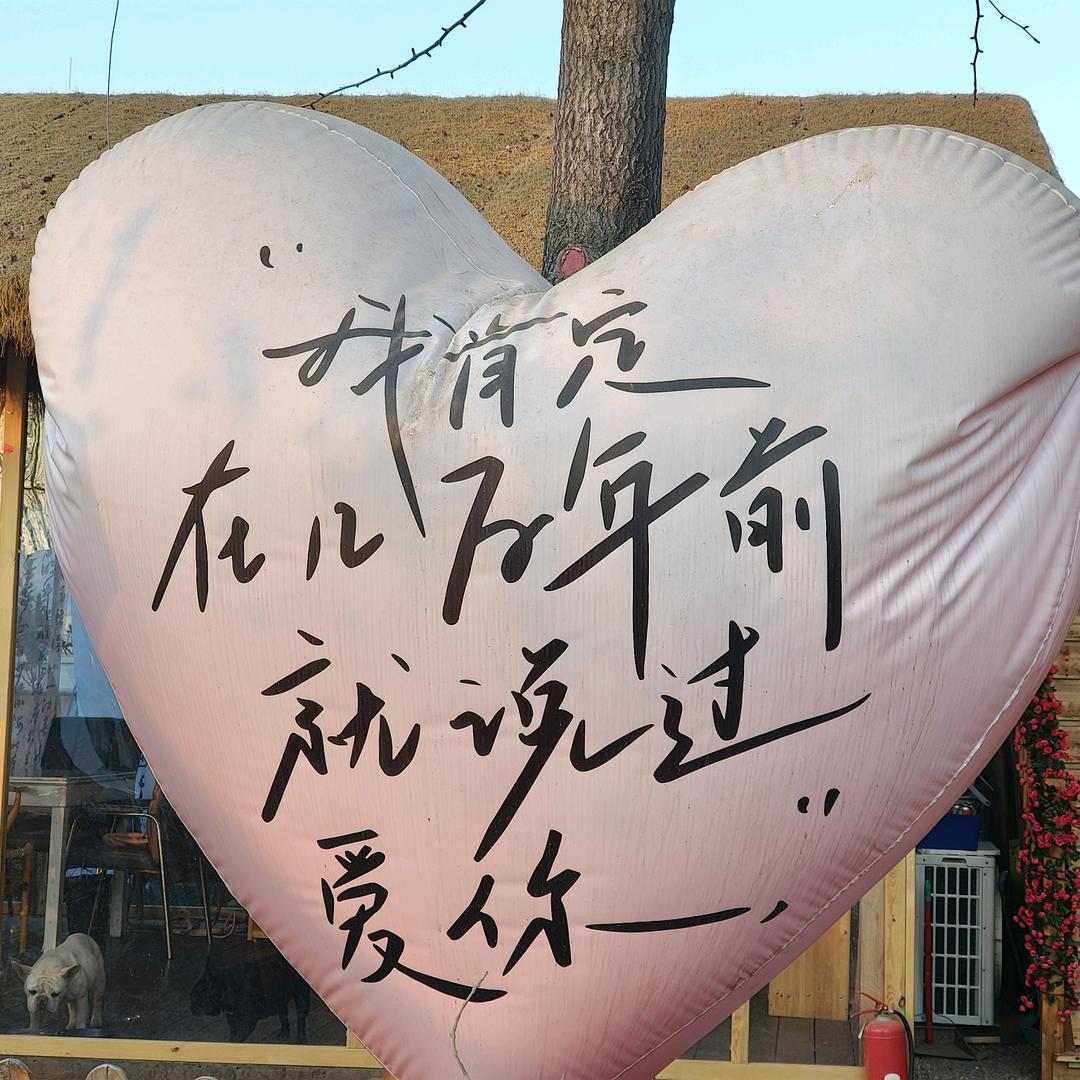 “我肯定
在几百年前
就说过
爱你—,”